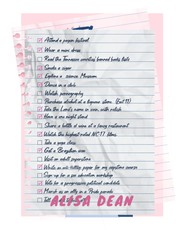 Attend a prayer festival
Wear a maxi dress
Read the Tennessee societal banned books lists
Smoke a cigar
Explore a science Museum
Dance in a club
Watch pornography
Purchase alcohol at a liquor store. (Eat 18)
Take the Lord's name in vain, with relish
Have a one night stand
Share a bottle of wine at a fancy restaurant
Watch the highest rated NC-17 film
Take a yoga class
Get a Brazilian wax
Visit an adult superstore
Write an anti-hilltop paper for my capstone course
Sign up for sex education workshop
Vote for a progressive political candidate
March as an ally in a Pride parade
Tell
ALYSA DEAN